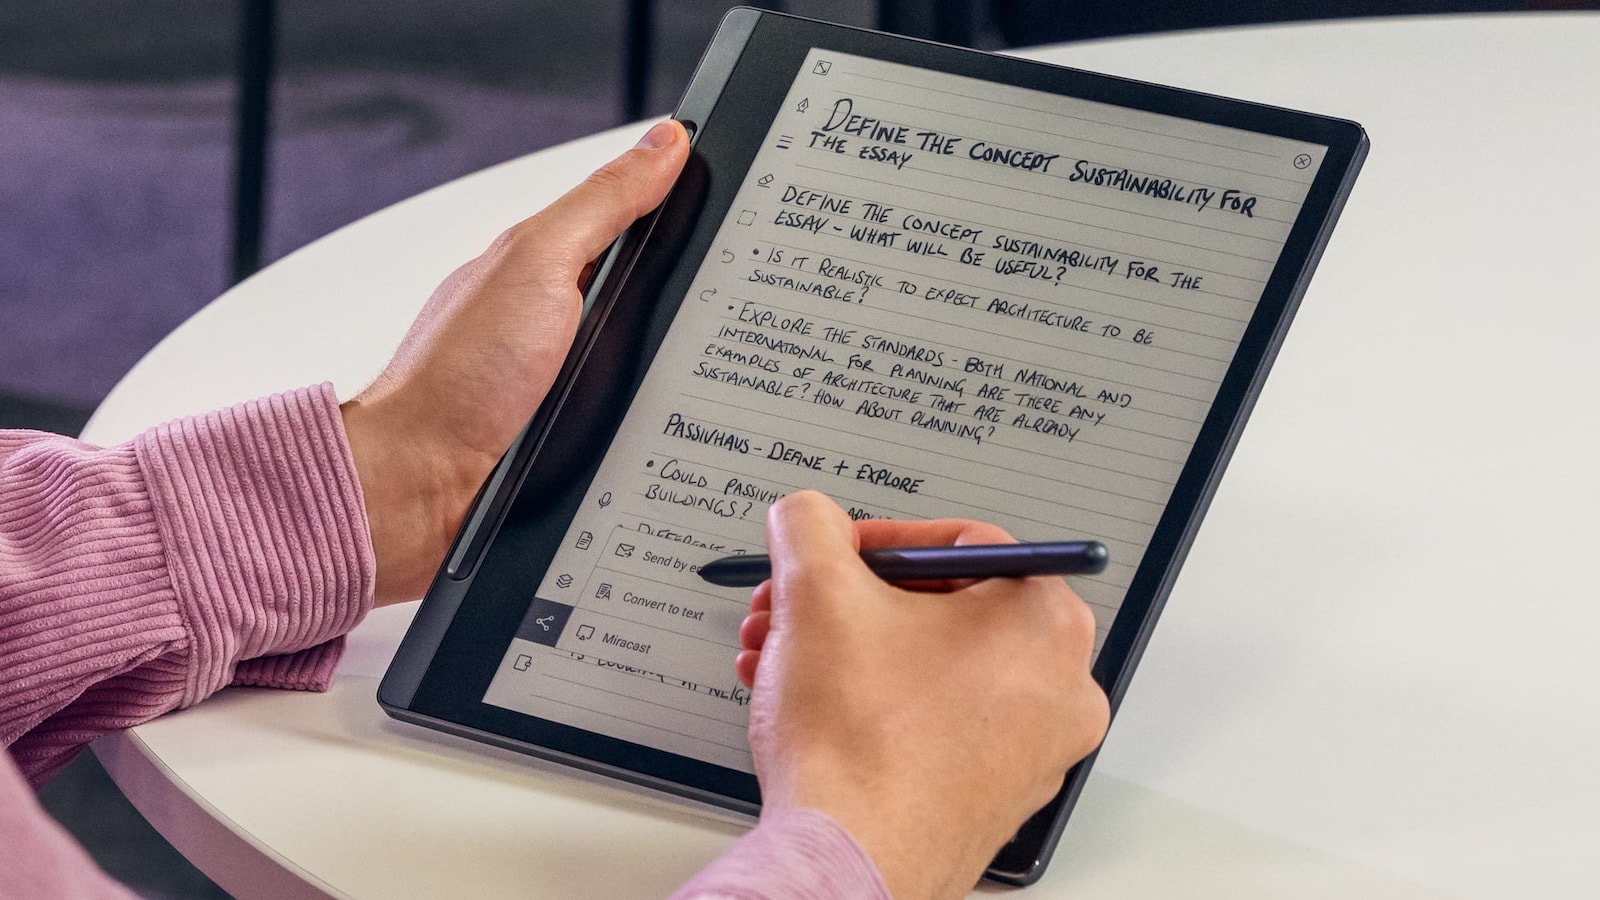 DEFINE THE CONCEPT SUSTAINABILITY FOR
THE ESSAY
DEFINE THE CONCEPT SUSTAINABILITY FOR THE
ESSAY - WHAT WILL BE USEFUL?
• IS IT REALISTIC TO EXPECT ARCHITECTURE TO BE
SUSTAINABLE?
• EXPLORE THE STANDARDS - BOTH NATIONAL AND
INTERNATIONAL FOR PLANNING ARE THERE ANY
EXAMPLES OF ARCHITECTURE THAT ARE ALREADY
SUSTAINABLE? HOW ABOUT PLANNING?
PASSIVHAUS - DEFINE + EXPLORE
• COULD
BUILDINGS?
DIFFERENT
Send by
Convert to text
Miracast